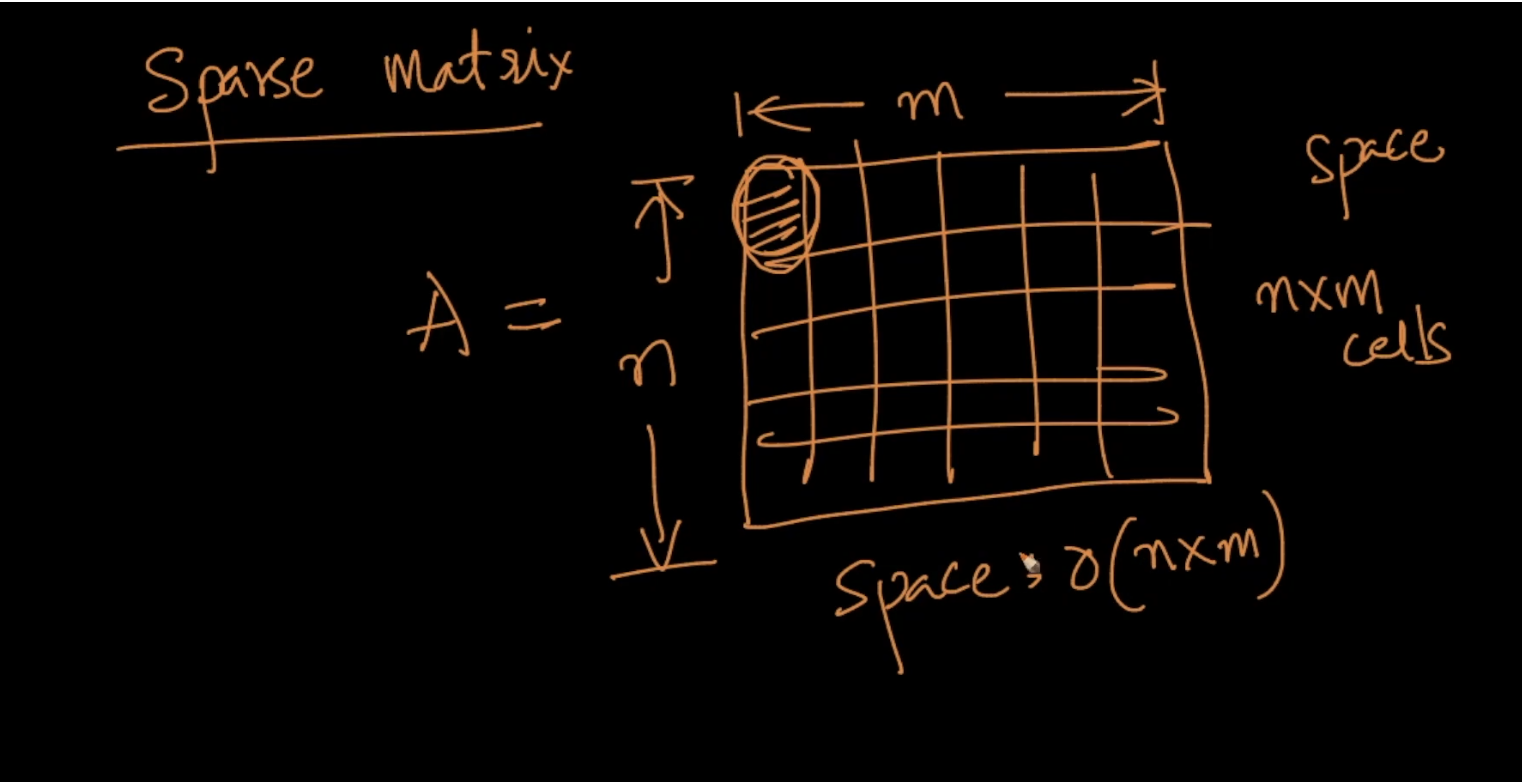 Sparse Matrix
m
Space
A =
n
n×m
cells
Space : O(n×m)